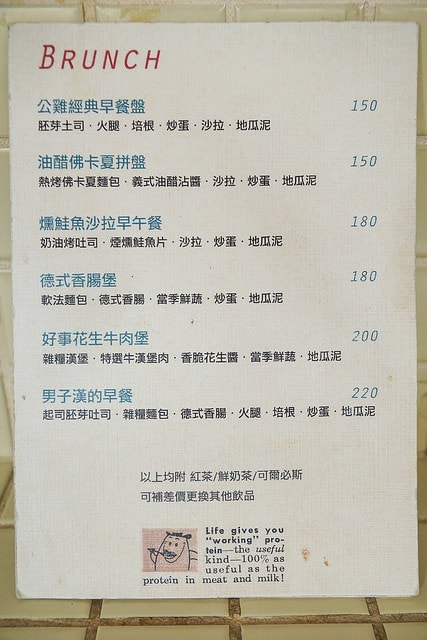 BRUNCH
公雞經典早餐盤 150
胚芽土司·火腿·培根·炒蛋·沙拉·地瓜泥
油醋佛卡夏拼盤 150
熱烤佛卡夏麵包·義式油醋沾醬·沙拉·炒蛋·地瓜泥
燻鮭魚沙拉早午餐 180
奶油烤吐司·煙燻鮭魚片·沙拉·炒蛋·地瓜泥
德式香腸堡 180
軟法麵包·德式香腸·當季鮮蔬·炒蛋·地瓜泥
好事花生牛肉堡 200
雜糧漢堡·特選牛漢堡肉·香脆花生醬·當季鮮蔬·地瓜泥
男子漢的早餐 220
起司胚芽吐司·雜糧麵包·德式香腸·火腿·培根·炒蛋·地瓜泥
以上均附 紅茶/鮮奶茶/可爾必斯
可補差價更換其他飲品
Life gives you
"working" pro-
tein—the useful
kind—100% as
useful as the
protein in meat and milk!